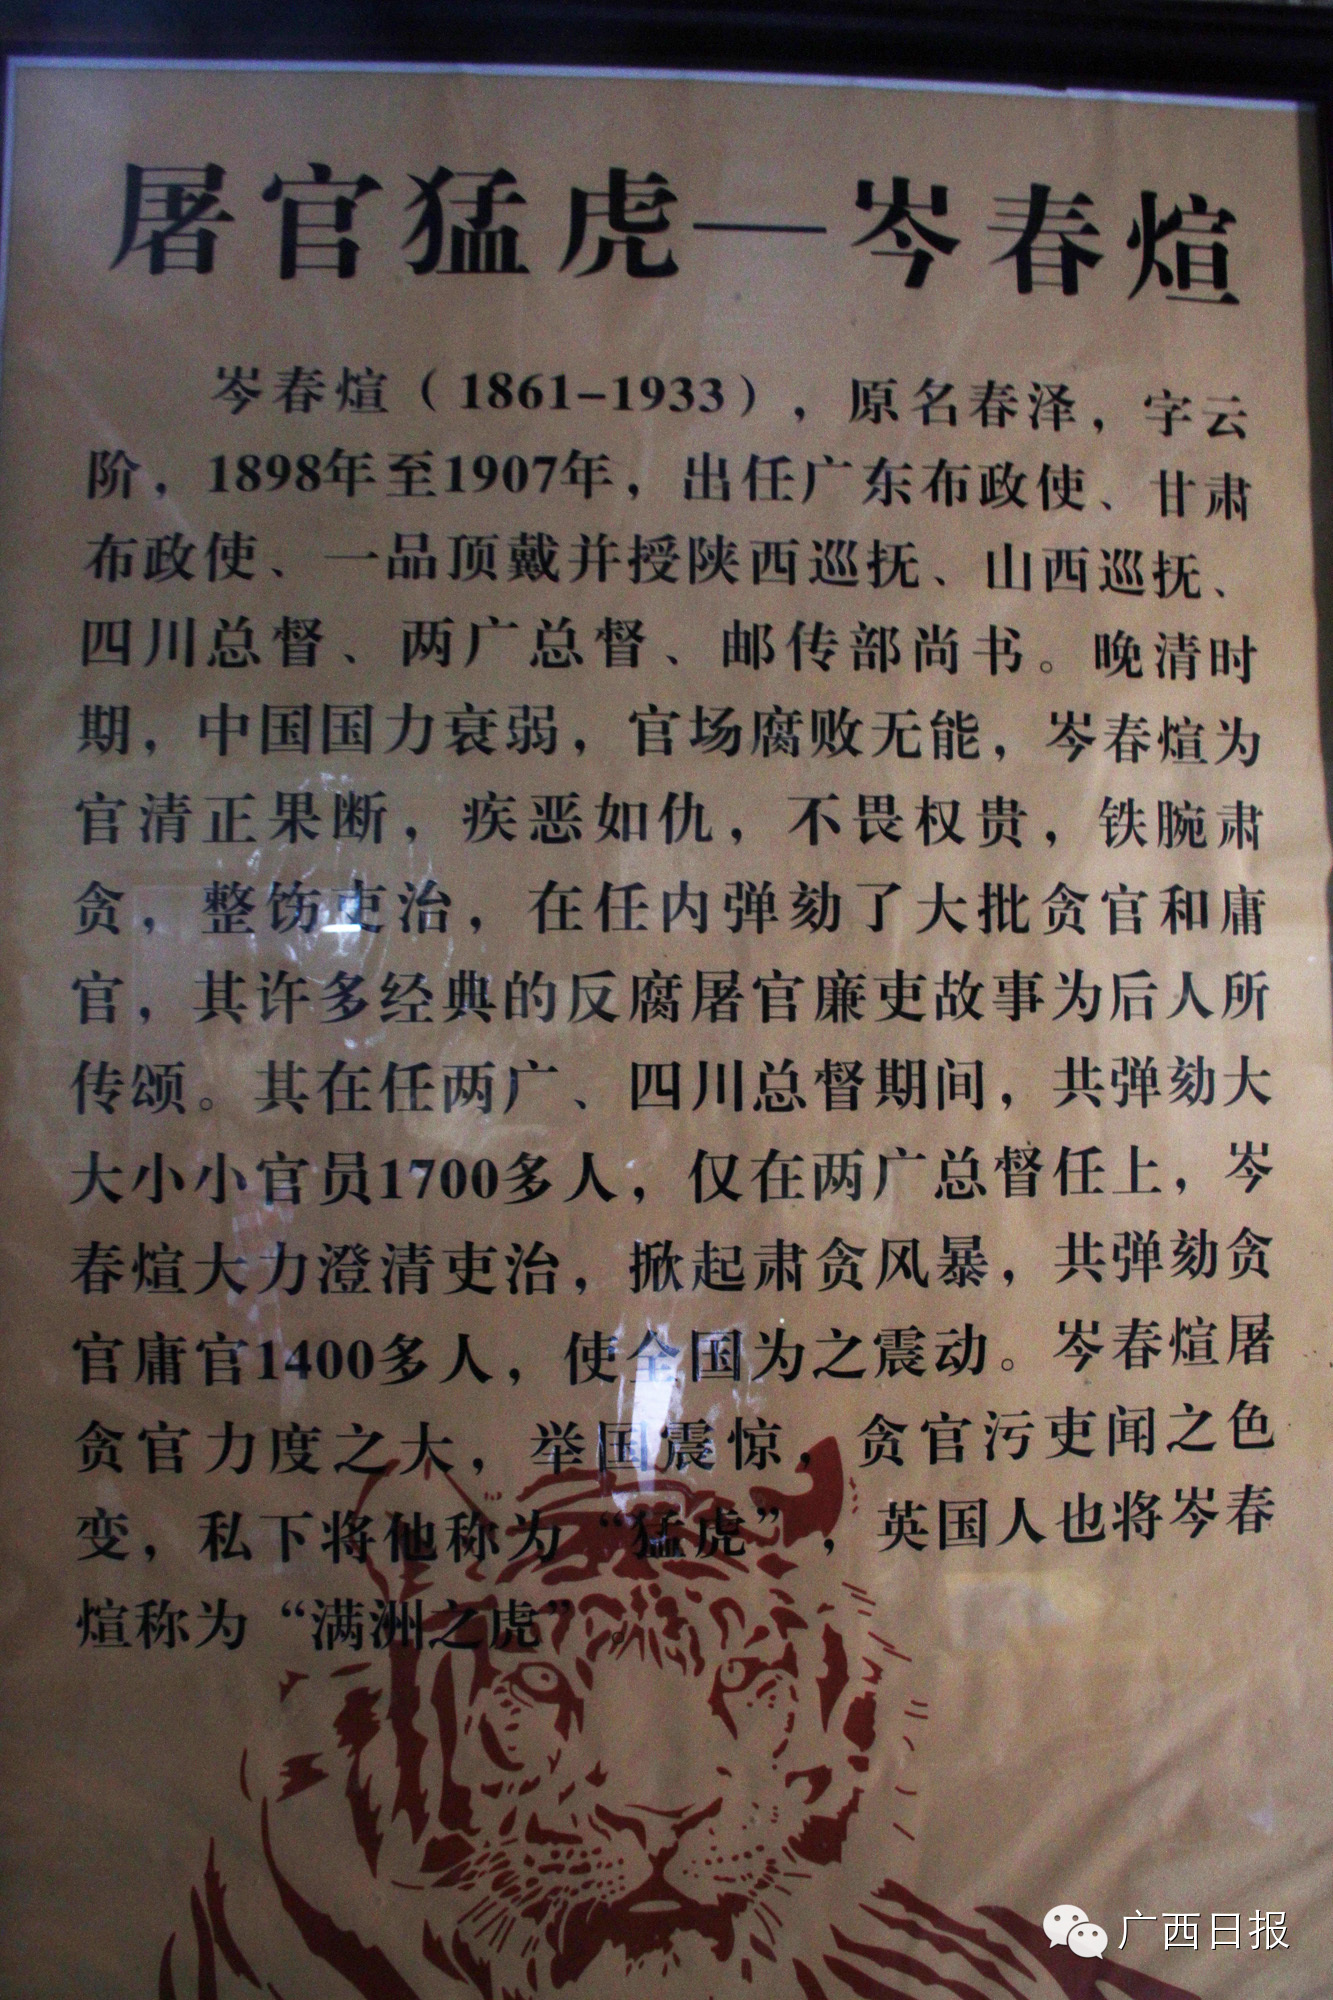 屠官猛虎—岑春煊
岑春煊（1861-1933），原名春泽，字云
阶，1898年至1907年，出任广东布政使、甘肃
布政使、一品顶戴并授陕西巡抚、山西巡抚、
四川总督、两广总督、邮传部尚书。晚清时
期，中国国力衰弱，官场腐败无能，岑春煊为
官清正果断，疾恶如仇，不畏权贵，铁腕肃
贪，整饬吏治，在任内弹劾了大批贪官和庸
官，其许多经典的反腐屠官廉吏故事为后人所
传颂。其在任两广、四川总督期间，共弹劾大
大小小官员1700多人，仅在两广总督任上，岑
春煊大力澄清吏治，掀起肃贪风暴，共弹劾贪
官庸官1400多人，使全国为之震动。岑春煊屠
贪官力度之大，举国震惊，贪官污吏闻之色
变，私下将他称为“猛虎”，英国人也将岑春
煊称为“满洲之虎”。
广西日报